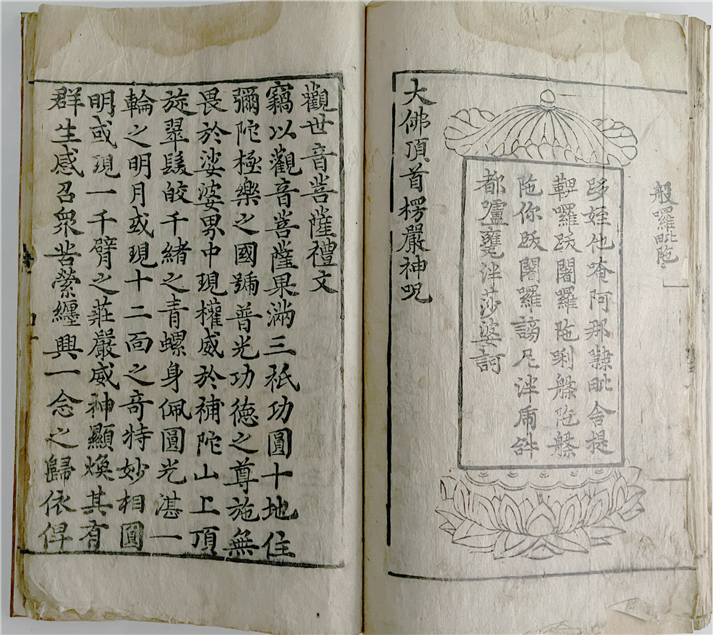 般囉毗陁
跢姪他唵阿那隷毗舍提
鞞囉跋闍羅陁唎槃陁槃
陁你跋闍羅謗尼泮虎𤙖
都嚧甕泮莎婆訶
大佛頂首楞嚴神呪
觀世音菩薩禮文
竊以觀音菩薩果滿三祇功圓十地住
彌陀極樂之國號普光功德之尊施無
畏於娑婆界中現權威於補陀山上頂
旋翠髮皎千緒之青螺身佩圓光湛一
輪之明月或現十二面之奇特妙相圓
明或現一千臂之莊嚴威神顯煥其有
群生感召衆苦縈纏興一念之歸依俾